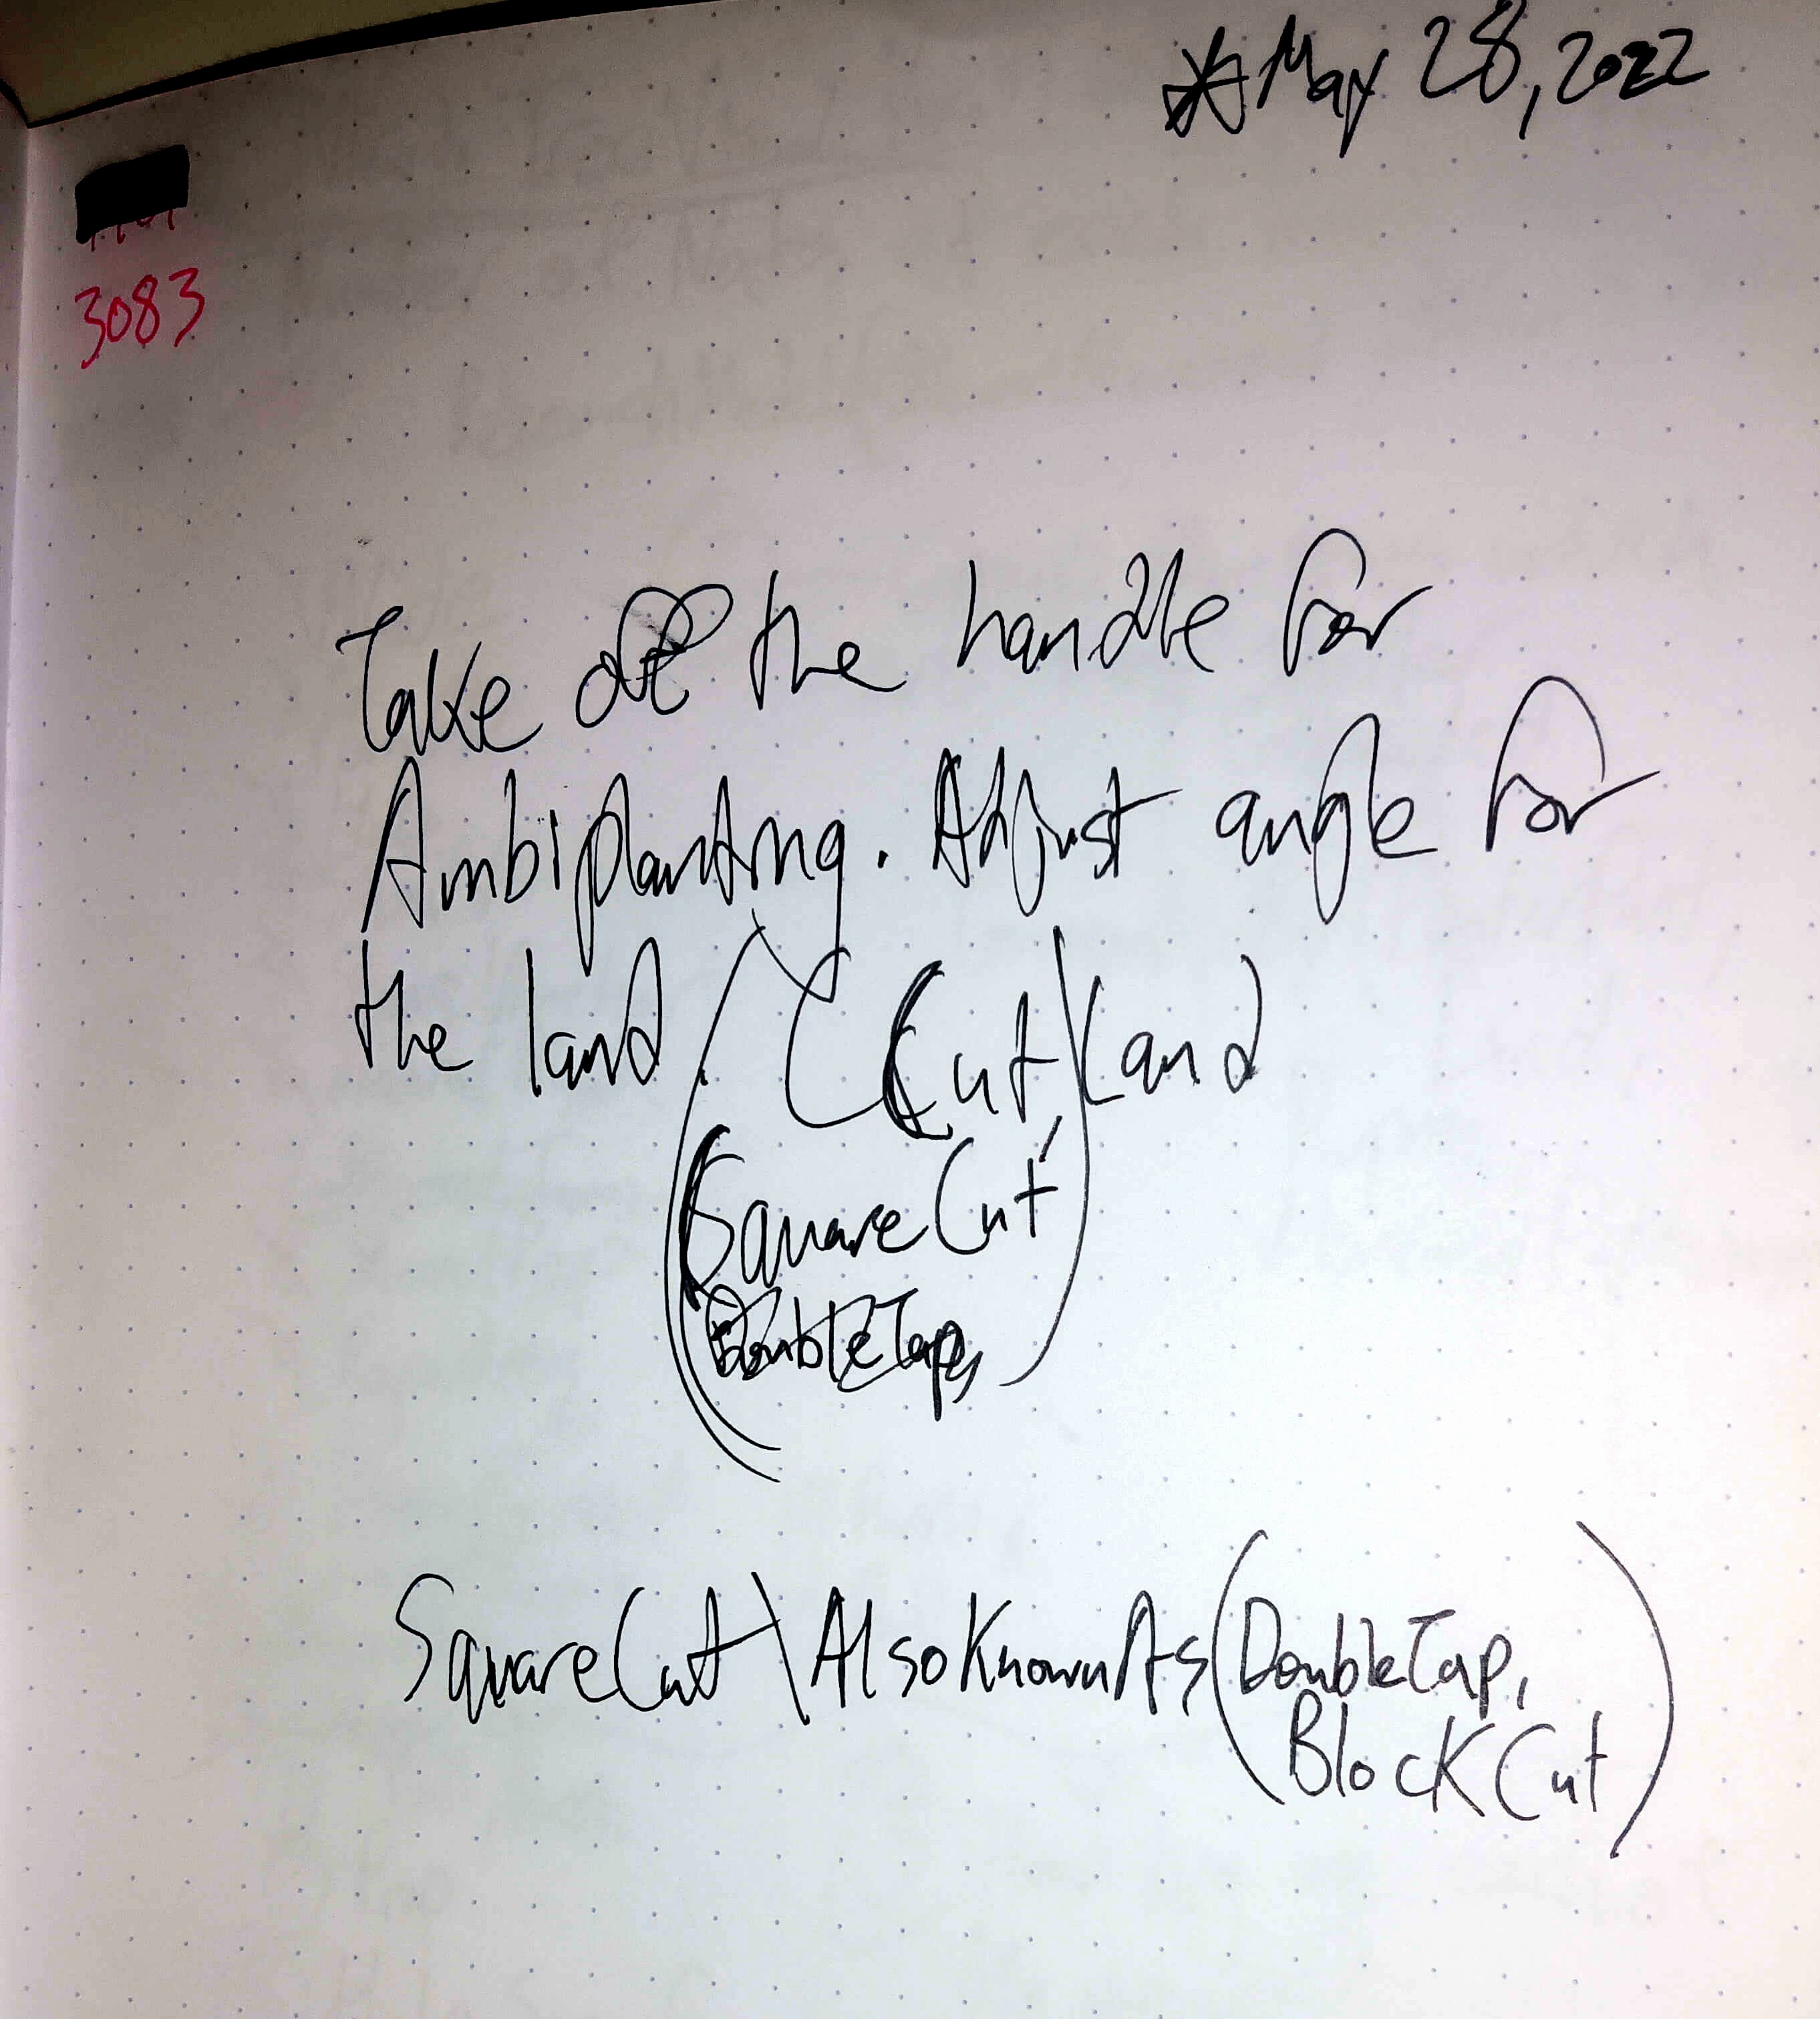 *May 28, 2022
3083
Take off the handle for
Ambiplanting. Adjust angle for
the land (C Cut, Land
SquareCut)
DoubleTap,
SquareCut\AlsoKnownAs(DoubleTap,
BlockCut)